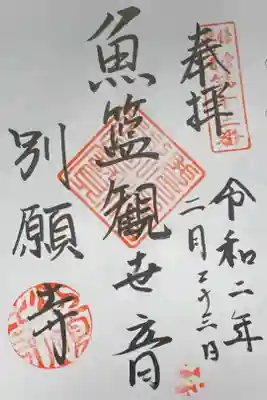 奉拝
令和二年
二月二十三日
魚籃観世音
別願寺